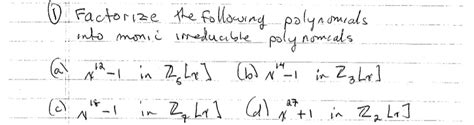 ① Factorize the following polynomials
into monic irreducible polynomials
(a) x¹²-1 in Z₅[x] (b) x¹⁴-1 in Z₃[x]
(c) x¹⁸-1 in Z₇[x] (d) x²⁷+1 in Z₂[x]